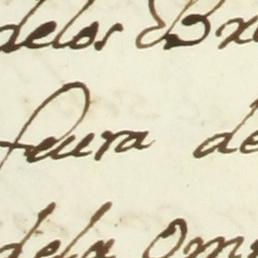 delos
feura de
dela Om